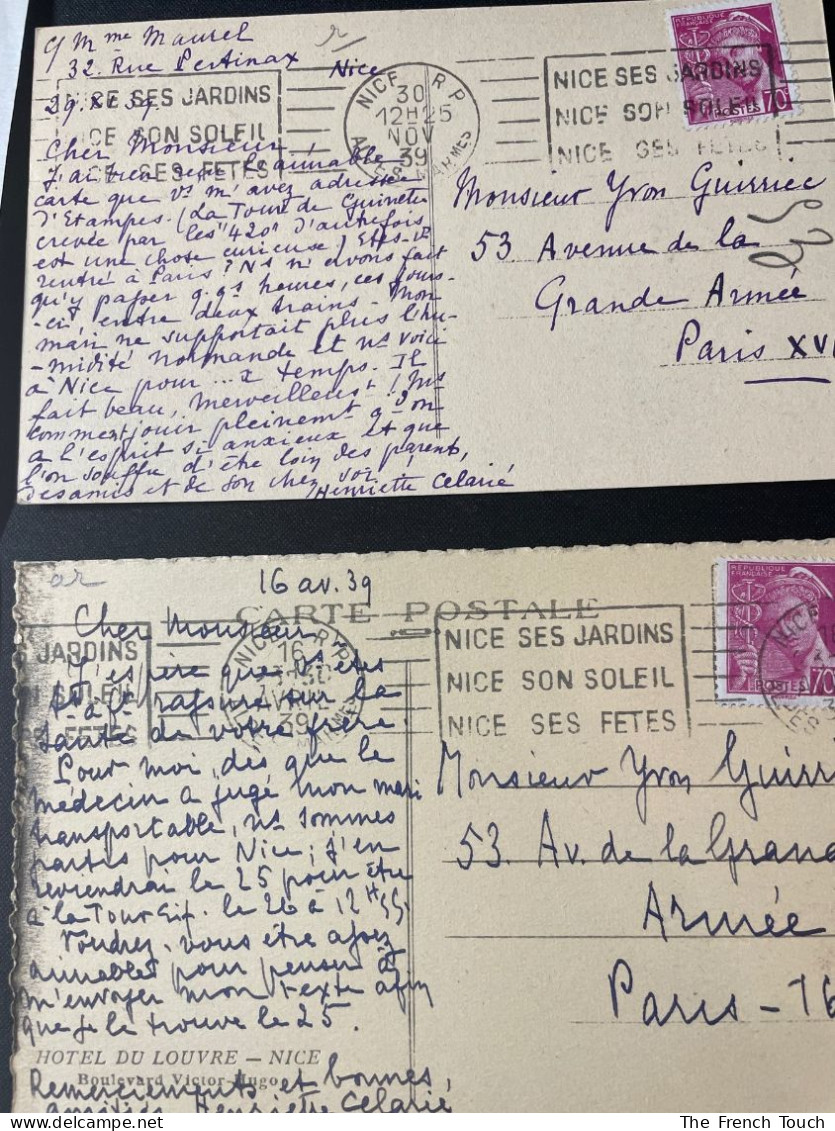 c/ Mme Maurel
32. Rue Pertinax
Nice
29. XI. 39.
NICE SES JARDINS
NICE SON SOLEIL
NICE SES FETES
NICE R.P.
30
12H25
NOV
39
ALPES MARMES
NICE SES JARDINS
NICE SON SOLEIL
NICE SES FETES
RÉPUBLIQUE FRANÇAISE
POSTES 70c
Cher Monsieur
J'ai bien reçu la aimable
carte que vs m'avez adressée
d'Etampes. (La Tour de Guinette
crevée par les "420" d'autrefois
est une chose curieuse) Etes-vs
rentré à Paris? Ns n'avons fait
qu'y passer q.qs heures, ces jours-
-ci, entre deux trains - Mon
mari ne supportait plus l'hu-
-midité normande et ns voici
à Nice pour ... x temps. Il
fait beau, merveilleust! Mais
comment jouir pleinemt qd on
a l'esprit si anxieux et que
l'on souffre d'être loin des parents,
des amis et de son chez soi.
Henriette Celarié
Monsieur Yvon Guirriec
53 Avenue de la
Grande Armée
Paris XVI
16 av. 39
CARTE POSTALE
JARDINS
SOLEIL
FETES
NICE R.P.
16
39
NICE SES JARDINS
NICE SON SOLEIL
NICE SES FETES
RÉPUBLIQUE FRANÇAISE
POSTES 70c
NICE
Cher Monsieur,
J'espère que vs êtes
tt à ft rassuré sur la
santé de votre frère.
Pour moi, dès que le
médecin a jugé mon mari
transportable, ns sommes
partis pour Nice; j'en
reviendrai le 25 pour être
à la Tour Eif. le 26 à 12H55.
Voudrez-vous être assez
aimables pour penser à
m'envoyer mon texte afin
que je le trouve le 25.
HOTEL DU LOUVRE – NICE
Boulevard Victor-Hugo
Remerciements et bonnes
amitiés Henriette Celarié
Monsieur Yvon Guirri
53. Av. de la Grand
Armée
Paris - 16
The French Touch